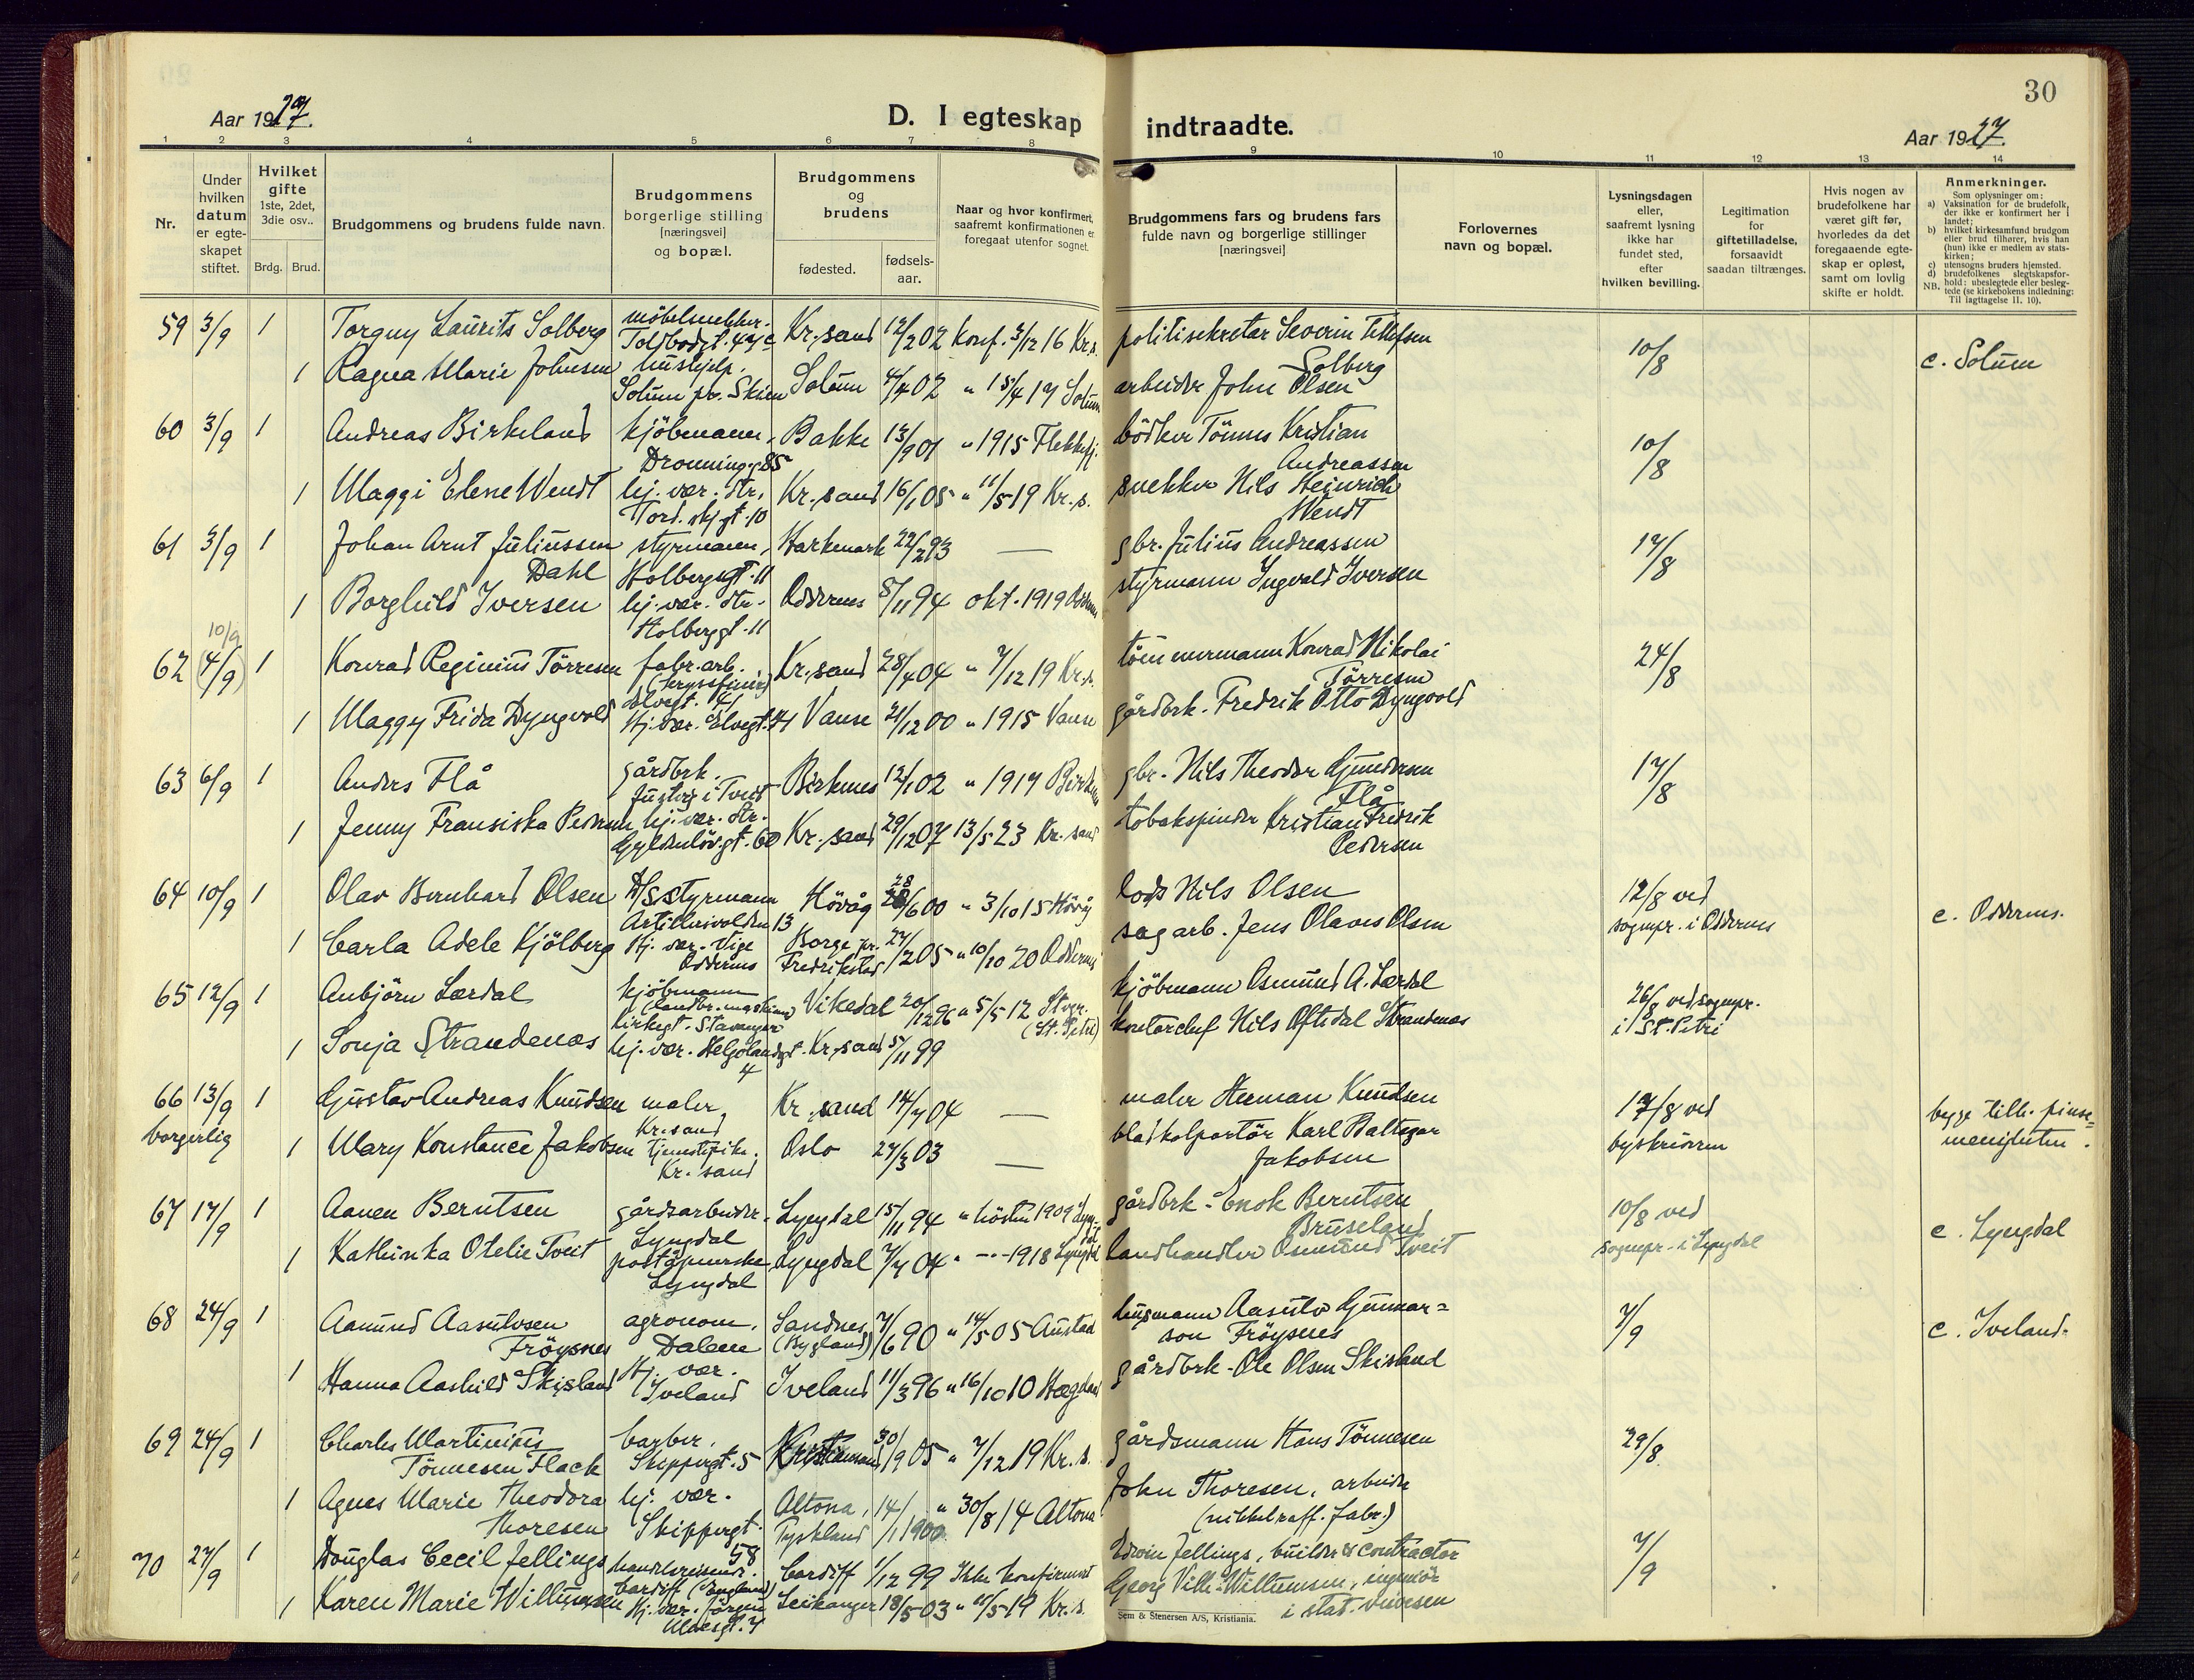 30
Aar 1927.
D. I egteskap indtraadte.
Aar 1927.
1 2 3 4 5 6 7 8 9 10 11 12 13 14
Nr.
Under hvilken datum er egte-skapet stiftet.
Hvilket gifte 1ste, 2det, 3die osv..
Brdg. Brud.
Brudgommens og brudens fulde navn.
Brudgommens borgerlige stilling [næringsvei] og bopæl.
Brudgommens og brudens
fødested.
fødsels-aar.
Naar og hvor konfirmert, saafremt konfirmationen er foregaat utenfor sognet.
Brudgommens fars og brudens fars fulde navn og borgerlige stillinger [næringsvei]
Forlovernes navn og bopæl.
Lysningsdagen eller, saafremt lysning ikke har fundet sted, efter hvilken bevilling.
Legitimation for giftetilladelse, forsaavidt saadan tiltrænges.
Hvis nogen av brudefolkene har været gift før, hvorledes da det foregaaende egte-skap er opløst, samt om lovlig skifte er holdt.
Anmerkninger.
Som oplysninger om:
a) Vaksination for de brudefolk, der ikke er konfirmert her i landet;
b) hvilket kirkesamfund brudgom eller brud tilhører, hvis han (hun) ikke er medlem av stats-kirken;
c) utensogns bruders hjemsted.
d) brudefolkenes slegtskapsfor-hold: ubeslegtede eller besleg-tede (se kirkebokens indledning: Til iagttagelse II. 10).
NB.
59 3/9 1 Torguy Laurits Solberg møbelsnekker. Toldbodgt. 47c Kr.sand 12/2 02 konf. 3/12 16 Kr.s. politisekretær Severin Tellefsen Solberg 10/8 c. Solum
1 Ragna Marie Johnsen hushjelp. Solum pr. Skien Solum 4/4 02 " 15/4 17 Solum arbeider John Olsen
60 3/9 1 Andreas Birkeland kjöbmann, Dronning.g 85 Bakke 13/9 01 " 1915 Flekkefj. bödker Tönnes Kristian Andreassen 10/8
1 Maggi Elene Wendt hj. vær. str. Tord.skj.gt. 10 Kr.sand 16/1 05 " 11/5 19 Kr.s. snekker Nils Heinrich Wendt
61 3/9 1 Johan Arnt Juliussen Dahl styrmann, Holbergsgt. 11 Harkmark 22/2 93 — gbr. Julius Andreassen 17/8
1 Borghild Iversen hj. vær. str. Holberggt. 11 Oddernes 5/11 94 okt. 1919 Oddernes styrmann Ingvald Iversen
62 10/9 (4/9) 1 Konrad Reginius Törresen fabr.arb. (kryssfiner) Elvegt. 41 Kr.sand 28/4 04 " 7/12 19 Kr.s. tömmermann Konrad Nikolai Törresen 24/8
1 Maggy Frida Dyngvold Hj. vær. Elvegt. 41 Vanse 21/12 00 " 1915 Vanse gårdbrk. Fredrik Otto Dyngvold
63 6/9 1 Anders Flå gårdbrk. i Tveit Birkenes 12/1 02 " 1917 Birkenes gbr. Nils Theodor Gundersen Flå 17/8
1 Jenny Fransiska Pedersen hj. vær. str. Gyldenlövsgt. 60 Kr.sand 29/12 07 13/5 23 Kr.sand tobakspinder Kristian Fredrik Pedersen
64 10/9 1 Olav Bernhard Olsen D/S styrmann Artillerivolden 13 Hövåg 28/6 00 " 3/10 15 Hövåg lods Nils Olsen 12/8 ved sognepr. i Oddernes c. Oddernes.
1 Carla Adele Kjölberg Hj. vær. Vige Oddernes Borge pr. Fredrikstad 27/2 05 " 10/10 20 Oddernes sagarb. Jens Olaves Olsen
65 12/9 1 Anbjörn Lærdal kjöbmann (landbr. maskiner) Kirkegt. Stavanger Vikedal 20/12 96 " 5/5 12 Stvgr. (St. Petri) kjöbmann Osmund A. Lærdal 26/8 ved sognepr. i St. Petri
1 Sonja Strandenæs hj. vær. Helgolandsgt. 4 Kr.sand 5/11 99 kontorchef Nils Oftedal Strandenæs
66 13/9 borgerlig 1 Gustav Andreas Knudsen maler, Kr.sand Kr.sand 14/7 04 — maler Herman Knudsen 17/8 ved byskriveren begge tilh. pinse-menigheten.
1 Mary Konstance Jakobsen tjenestepike. Kr.sand Oslo 27/3 03 — bladkolportör Karl Baltzar Jakobsen
67 17/9 1 Aanen Berntsen gårdsarbeider. Lyngdal Lyngdal 15/11 94 " hösten 1909 Lyngdal gårdbrk. Enok Berntsen Bruseland 10/8 ved sognepr. i Lyngdal c. Lyngdal
1 Kathinka Otelie Tveit poståpnerske Lyngdal Lyngdal 7/7 04 " — 1918 Lyngdal landhandler Osmund Tveit
68 24/9 1 Aamund Aasulvsen Fröysnes agronom. Dalane Sandnes (Bygland) 7/6 90 " 14/5 05 Austad husmann Aasulv Gunnar-son Fröysnes 7/9 c. Iveland.
1 Hanna Aashild Skisland Hj. vær. Iveland Iveland 11/3 96 " 16/10 10 Hægeland gårdbrk. Ole Olsen Skisland
69 24/9 1 Charles Martinius Tönnesen Flack barber. Skippergt. 5 Kristiansand 30/9 05 " 7/12 19 Kr.s. gårdsmann Hans Tönnesen 29/8
1 Agnes Marie Theodora Thoresen hj. vær. Skippergt. 58 Altona, Tyskland 14/1 1900 " 30/8 14 Altona John Thoresen, arbeider (nikkelraff. fabr.)
70 27/9 1 Douglas Cecil Jellings handelsreisende. Cardiff (England) Cardiff 1/12 99 Ikke konfirmert Edwin Jellings, builder & contractor 7/9
1 Karen Marie Willumsen Hj. vær. Jörgen Moesgt. 7 Leikanger 18/5 03 " /5 19 Kr.s. Georg Vilh. Willumsen, ingeniör i stat. veivesen
Sem & Stenersen A/S, Kristiania.